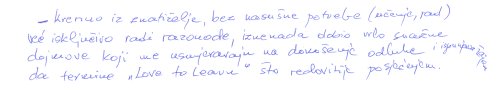 - krenuo iz znatiželje, bez nasušne potrebe (učenje, rad)
već isključivo radi razonode, iznenada dobio vrlo snažne
dojmove koji me usmjeravaju na donošenje odluke i
da termine "Love to Learn" što redovitije posjećujem.